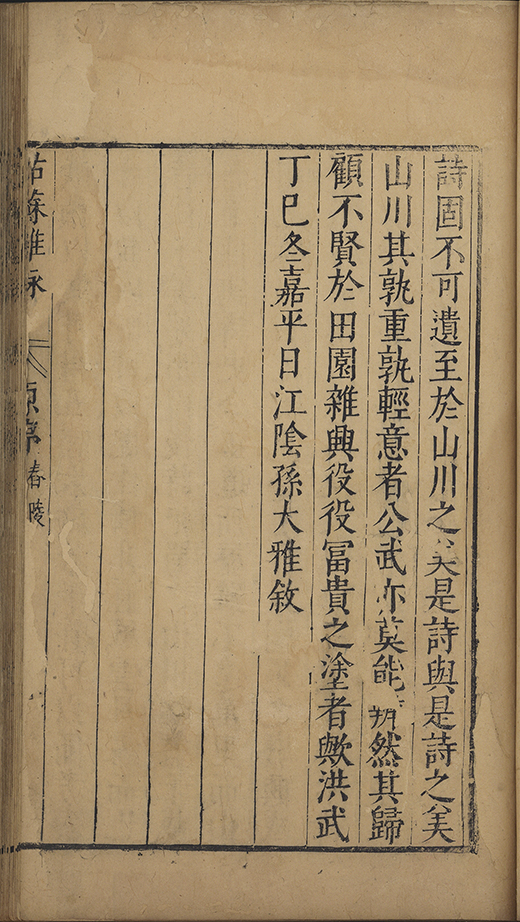 詩固不可遺至於山川之美是詩與是詩之美
山川其孰重孰輕意者公武亦莫能然其歸
顧不賢於田園雜興役役冨貴之塗者歟洪武
丁巳冬嘉平日江陰孫大雅敘
姑蘇雜咏
原序
春陵